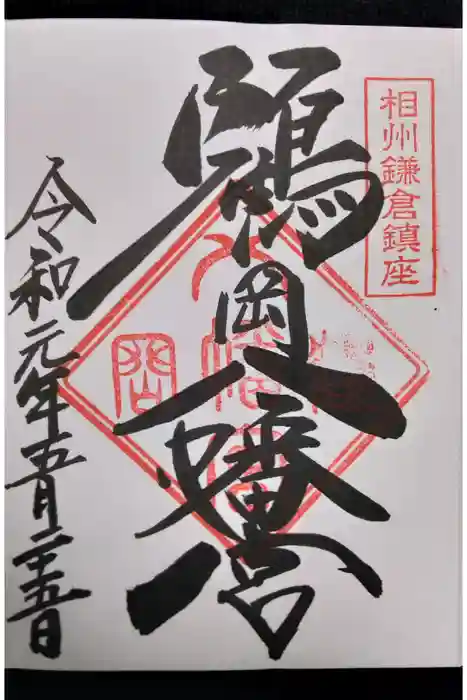 相州鎌倉鎮座
鶴岡八幡宮
令和元年五月二十五日